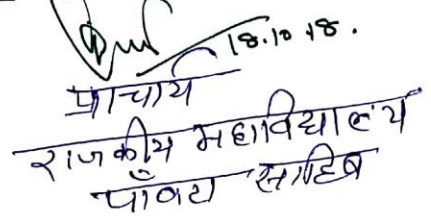 18.10.18.
प्राचार्य
राजकीय महाविद्यालय
पाँवटा साहिब